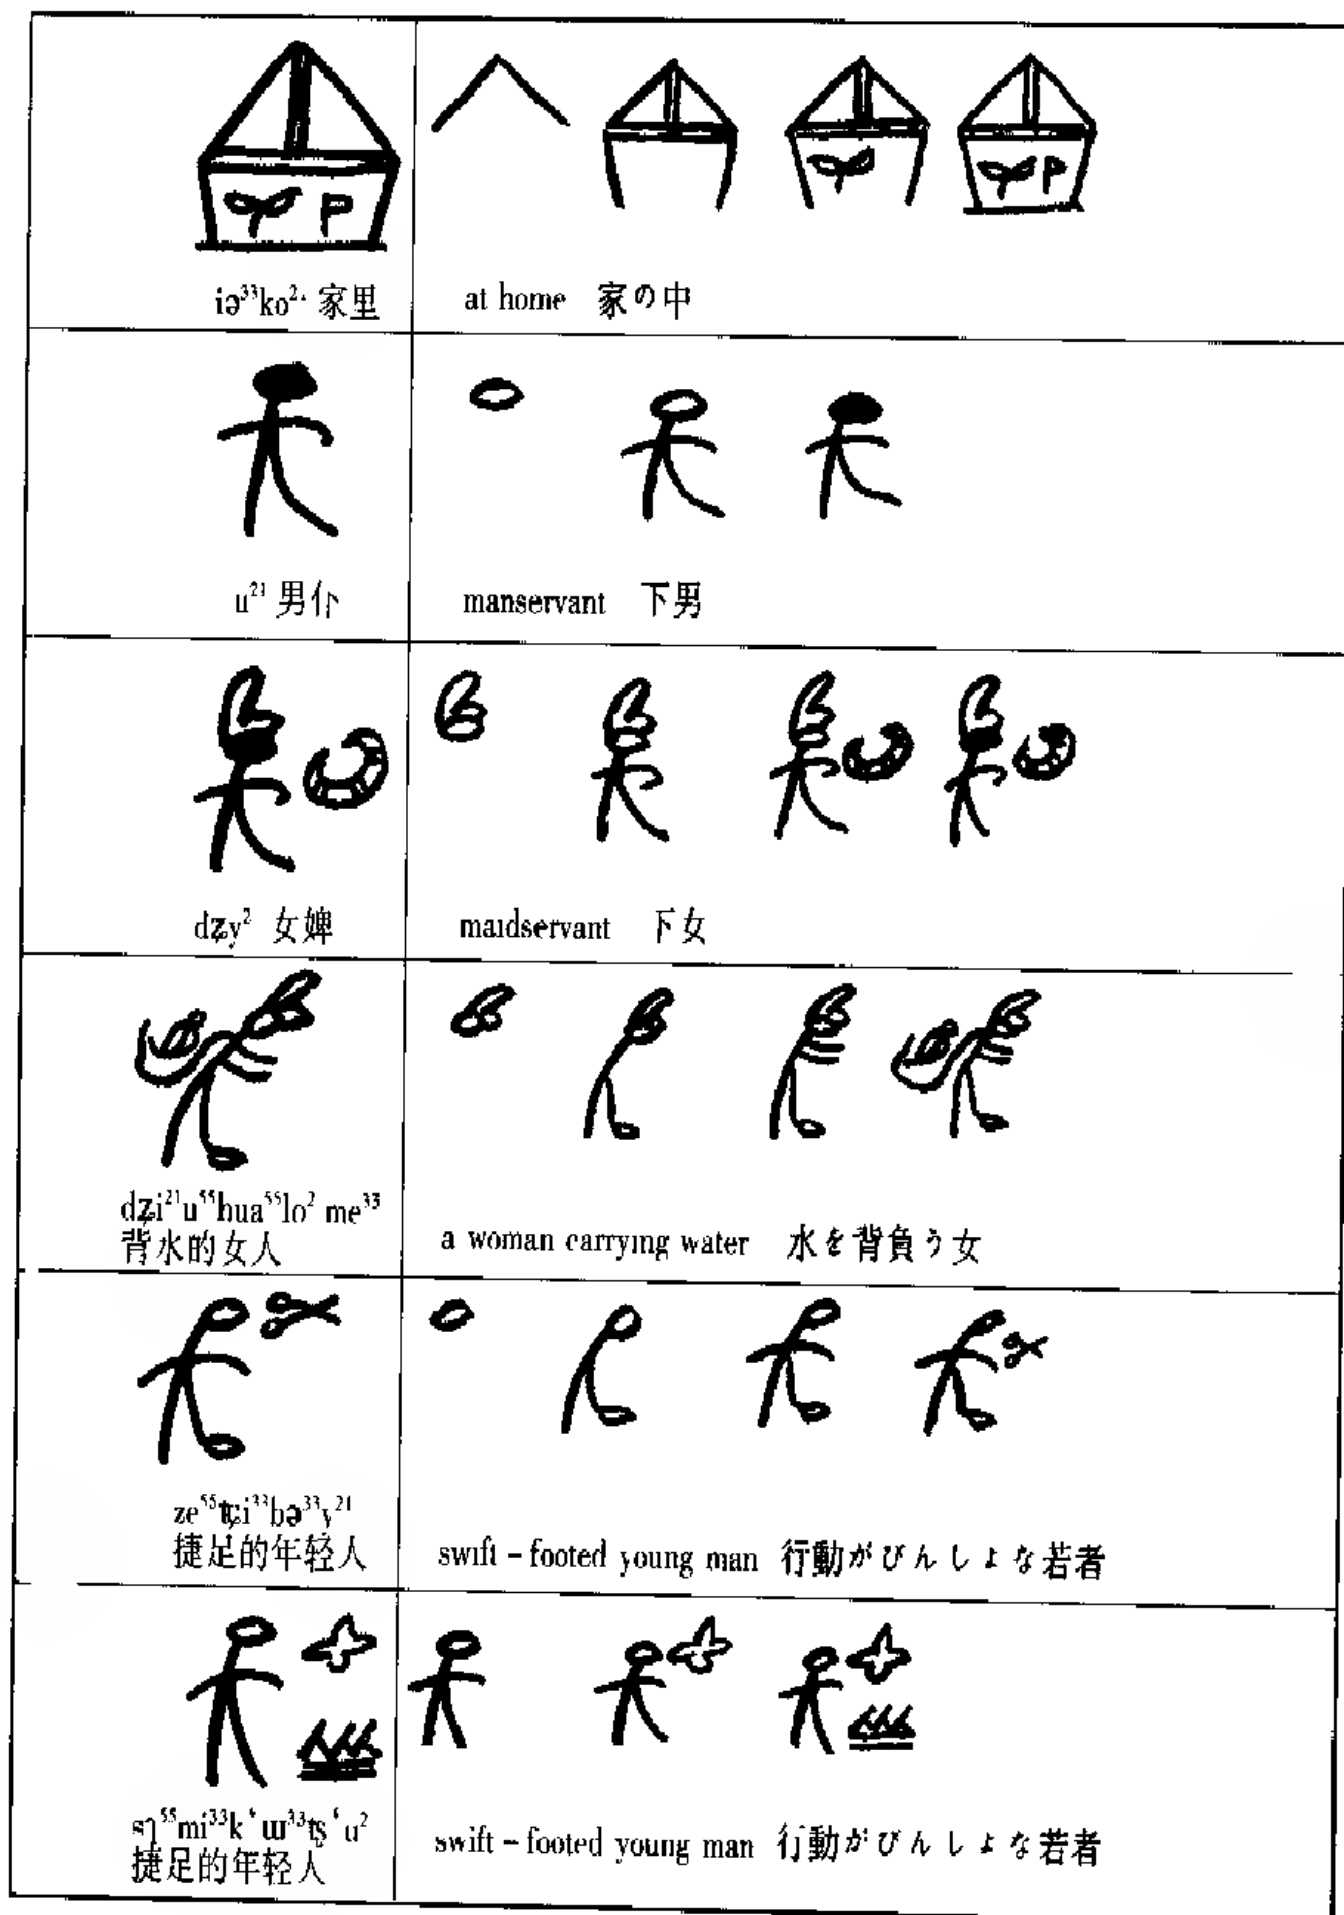 iə³³ko²¹ 家里
at home 家の中
u²¹ 男仆
manservant 下男
dʐy² 女婢
maidservant 下女
dʑi²¹u⁵⁵hua⁵⁵lo² me³³
背水的女人
a woman carrying water 水を背負う女
ze⁵⁵tɕi³³bə³³y²¹
捷足的年轻人
swift–footed young man 行動がびんしょな若者
sɿ⁵⁵mi³³k‘ɯ³³tʂ‘u²
捷足的年轻人
swift–footed young man 行動がびんしょな若者